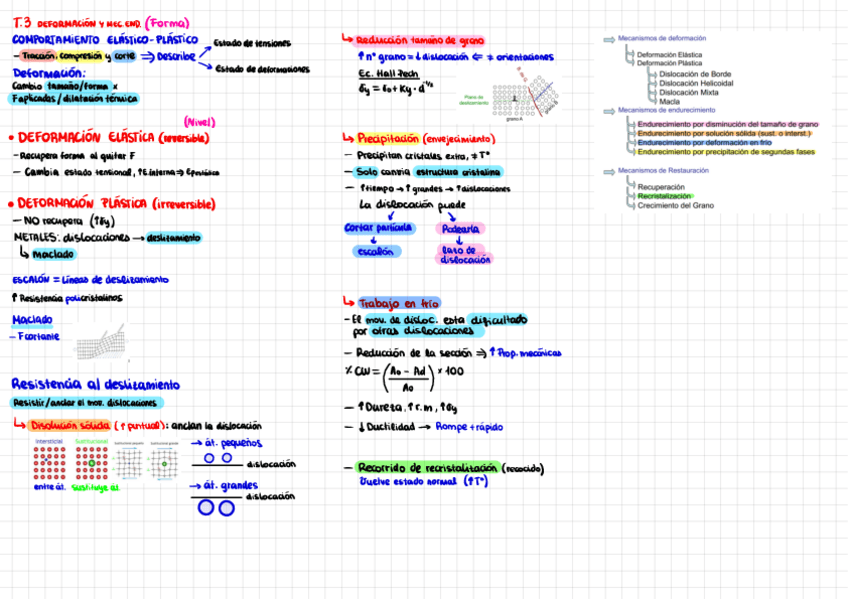 T.3 DEFORMACIÓN Y MEC. END. (Forma)
COMPORTAMIENTO ELÁSTICO-PLÁSTICO
- Tracción, compresión y corte ⇒ Describe
Estado de tensiones
Estado de deformaciones
Deformación:
Cambio tamaño/forma x
F aplicadas/dilatación térmica
(Nivel)
• DEFORMACIÓN ELÁSTICA (reversible)
- Recupera forma al quitar F
- Cambia estado tensional, ↑E.interna ⇒
• DEFORMACIÓN PLÁSTICA (irreversible)
- NO recupera (↑σy)
METALES: dislocaciones → deslizamiento
↳ maclado
ESCALÓN = Líneas de deslizamiento
↑ Resistencia policristalinos
Maclado
- F cortante
Resistencia al deslizamiento
Resistir/anclar el mov. dislocaciones
↳ Disolución sólida (↑ puntual): anclan la dislocación
Intersticial
Sustitucional
entre át.
sustituye át.
→ át. pequeños
dislocación
→ át. grandes
dislocación
↳ Reducción tamaño de grano
↑ nº grano = ↓ dislocación ⇐ ≠ orientaciones
Ec. Hall Pech
σy = σ0 + Ky · d^-1/2
Plano de
deslizamiento
grano A
grano B
↳ Precipitación (envejecimiento)
- Precipitan cristales extra, ≠ Tª
- Solo cambia estructura cristalina
- ↑tiempo → ↑ grandes → ↑dislocaciones
La dislocación puede
Cortar partícula
Rodearla
escalón
lazo de
dislocación
↳ Trabajo en frío
- El mov. de disloc. esta dificultado
por otras dislocaciones
- Reducción de la sección ⇒ ↑ Prop. mecánicas
% CW = (A0 - Ad / A0) × 100
- ↑ Dureza, ↑ r.m, ↑σy
- ↓ Ductilidad → Rompe + rápido
- Recorrido de recristalización (recocido)
Vuelve estado normal (↑Tª)
Mecanismos de deformación
Deformación Elástica
Deformación Plástica
Dislocación de Borde
Dislocación Helicoidal
Dislocación Mixta
Macla
Mecanismos de endurecimiento
Endurecimiento por disminución del tamaño de grano
Endurecimiento por solución sólida (sust. o interst.)
Endurecimiento por deformación en frío
Endurecimiento por precipitación de segundas fases
Mecanismos de Restauración
Recuperación
Recristalización
Crecimiento del Grano